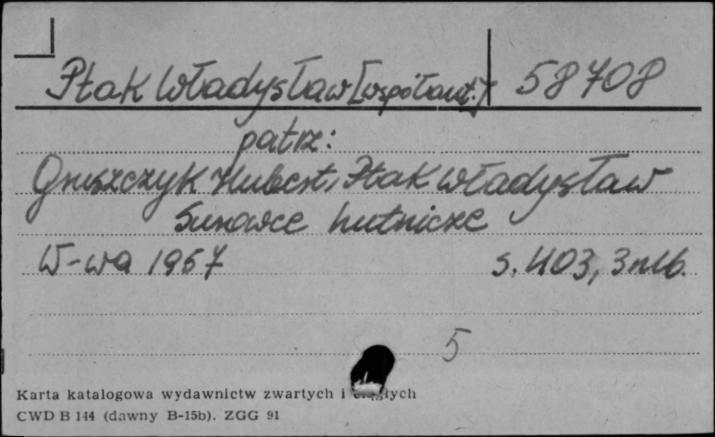 Ptak Władysław [współaut.] 58708
patrz:
Gruszczyk Hubert, Ptak Władysław
Surowce hutnicze
W-wa 1967 s. 403, 3 nlb.
5
Karta katalogowa wydawnictw zwartych i ciągłych
CWD B 144 (dawny B-15b). ZGG 91